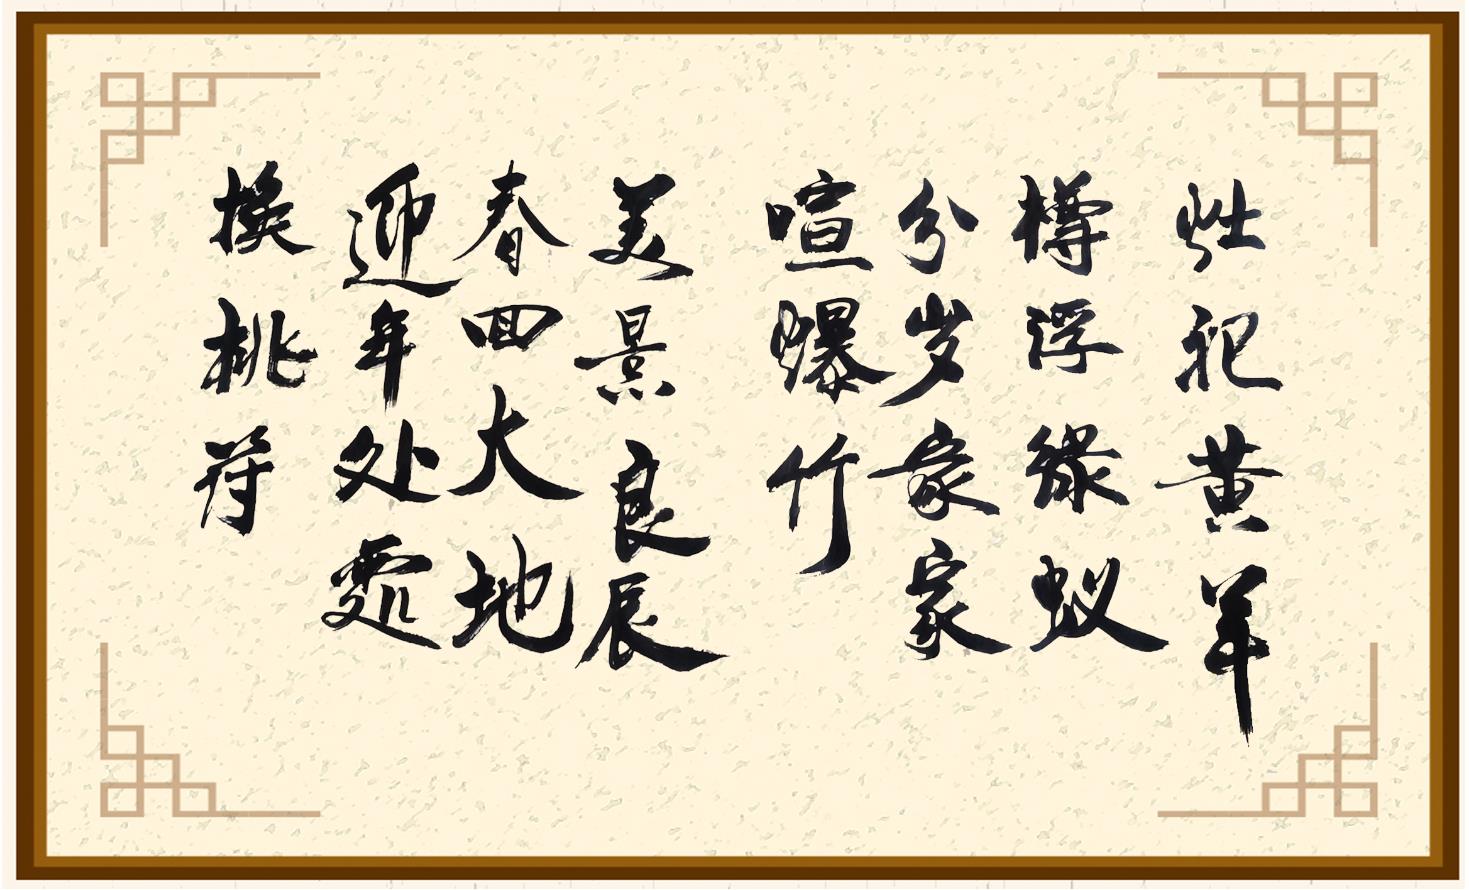 灶祀黄羊
樽浮绿蚁
分岁家家
喧爆竹
美景良辰
春回大地
迎年处处
换桃符